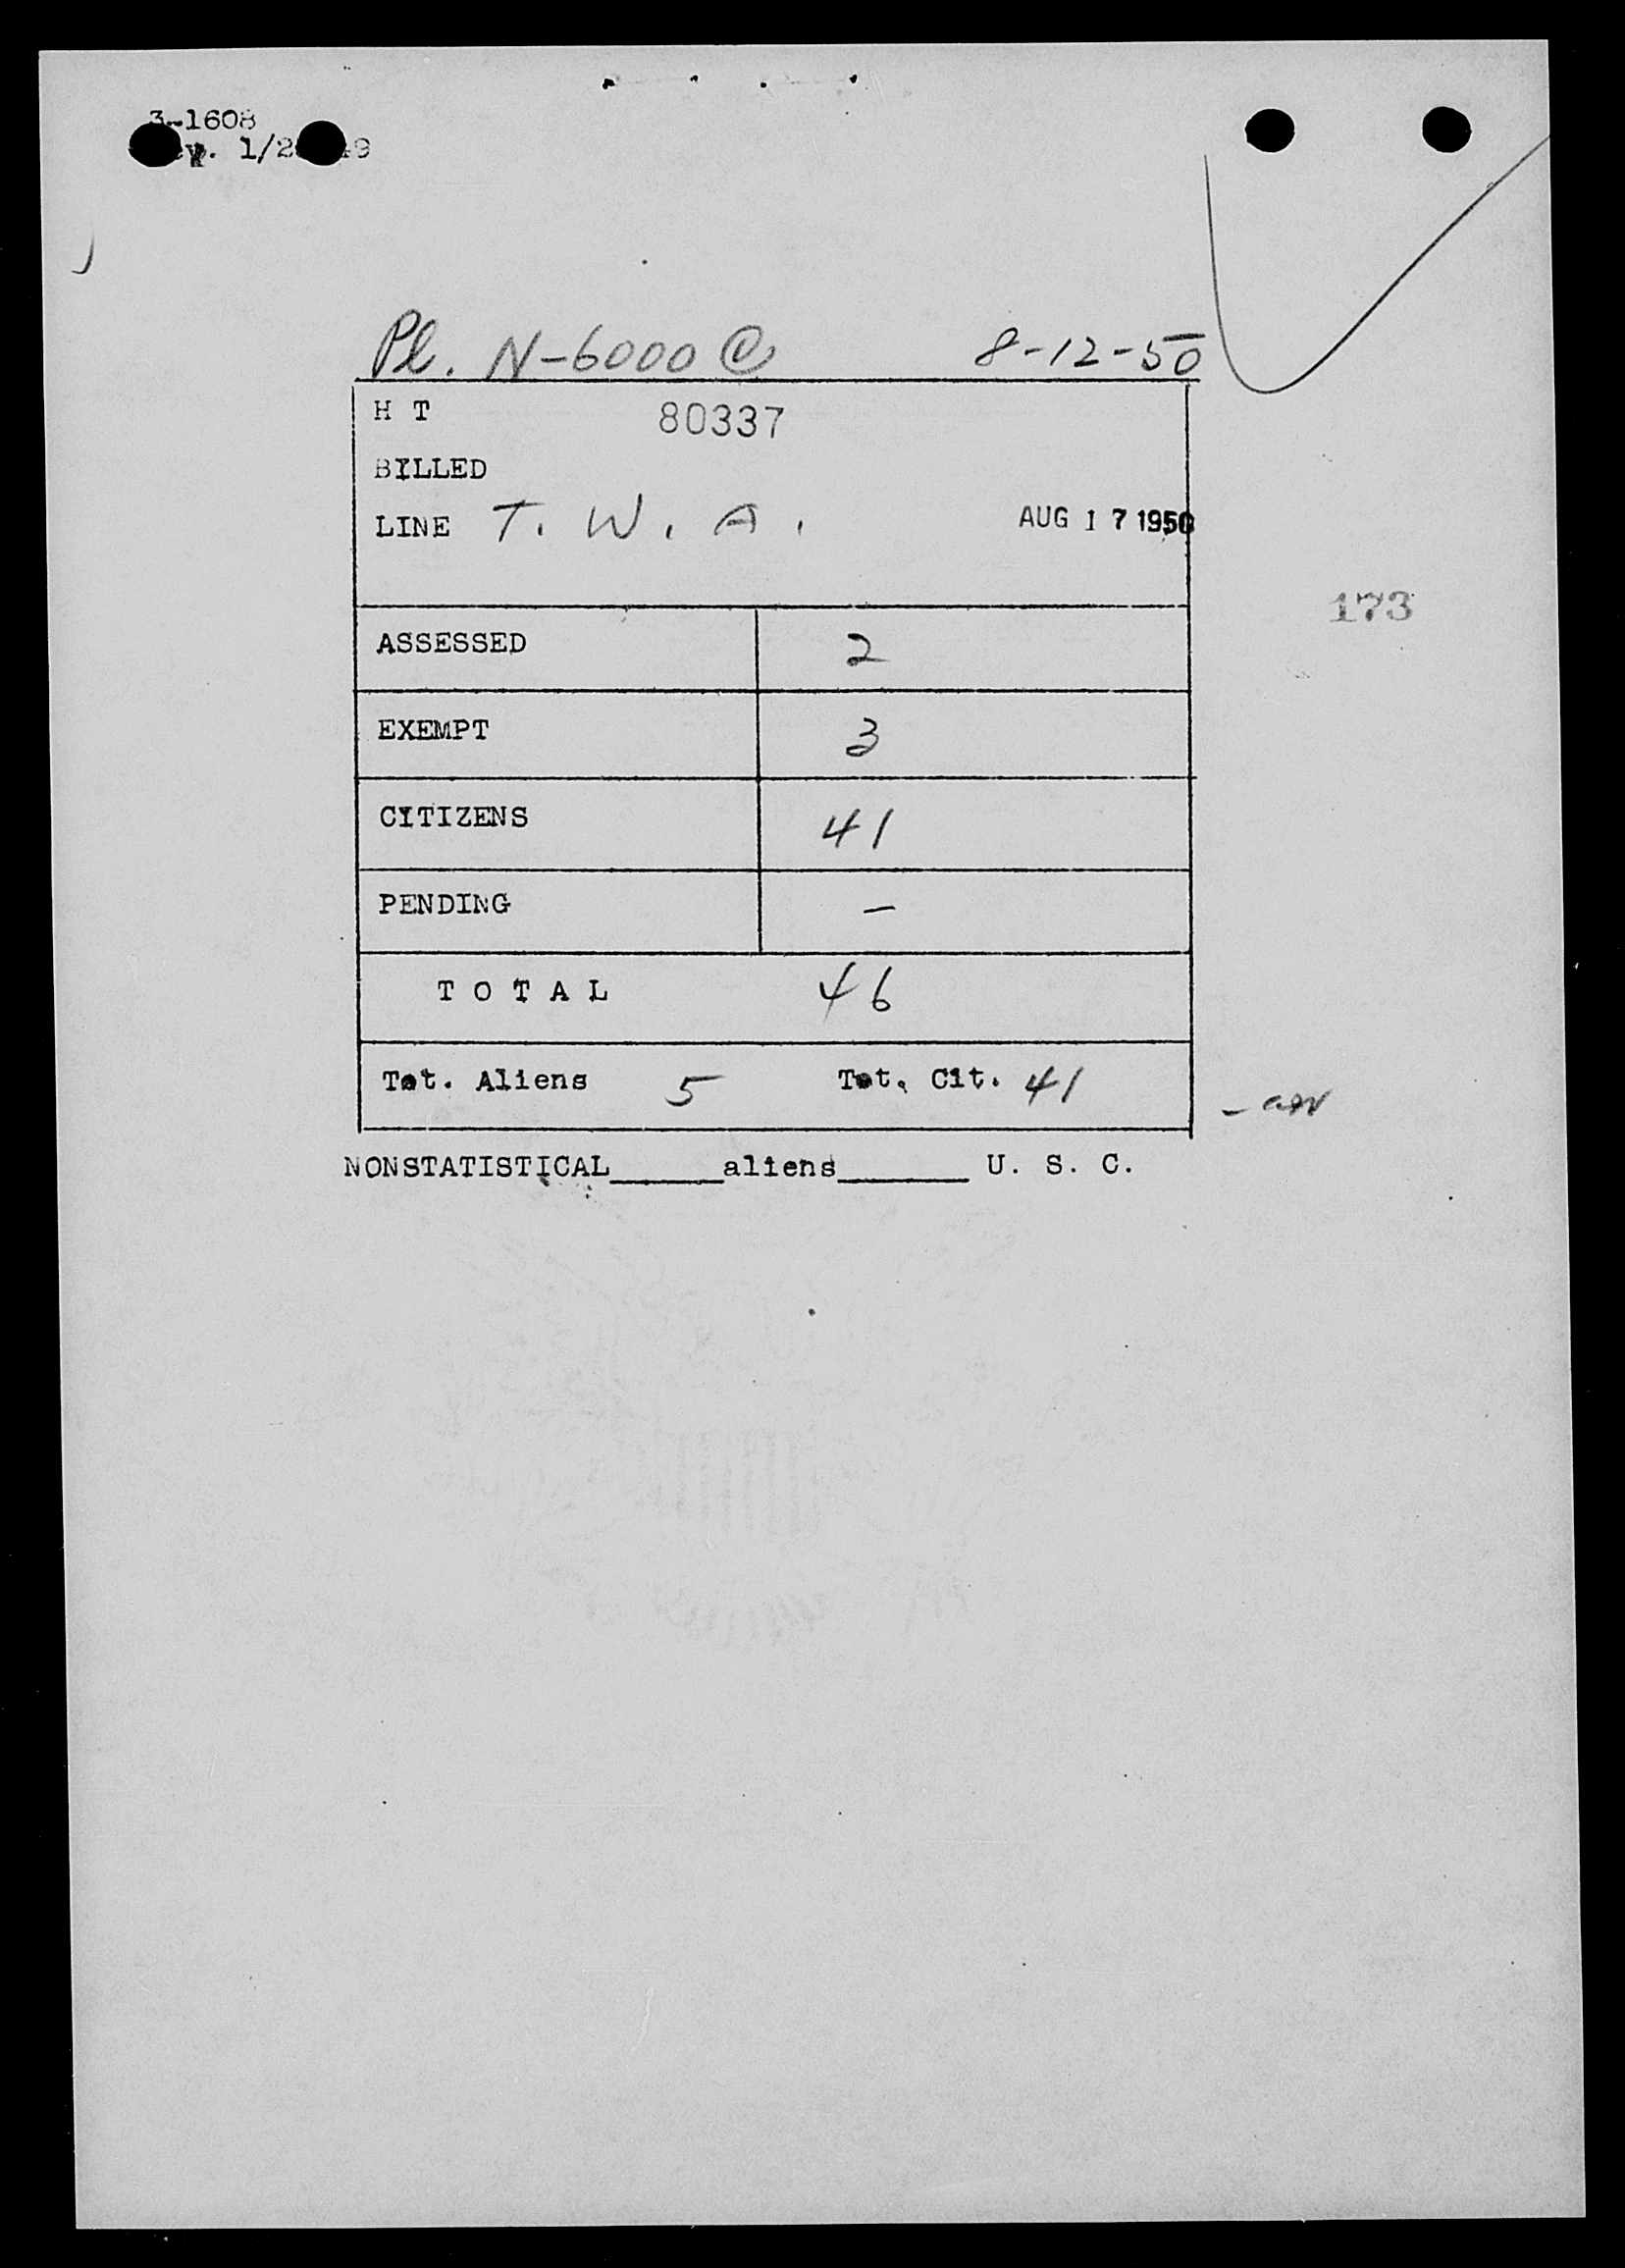 3-1608
1/2
Pl. N-6000 C 8-12-50
H T 80337
BILLED
LINE T. W. A. AUG 17 1950
173
ASSESSED 2
EXEMPT 3
CITIZENS 41
PENDING —
TOTAL 46
Tot. Aliens 5 Tot. Cit. 41
NONSTATISTICAL______aliens_______ U. S. C.